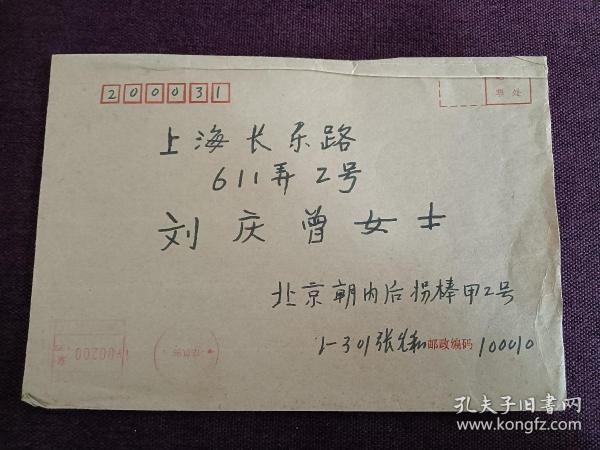 200031
票处
上海长乐路
611弄2号
刘庆曾女士
北京朝内后拐棒甲2号
1-301张允和邮政编码100010
00200
孔夫子旧书网
www.kongfz.com